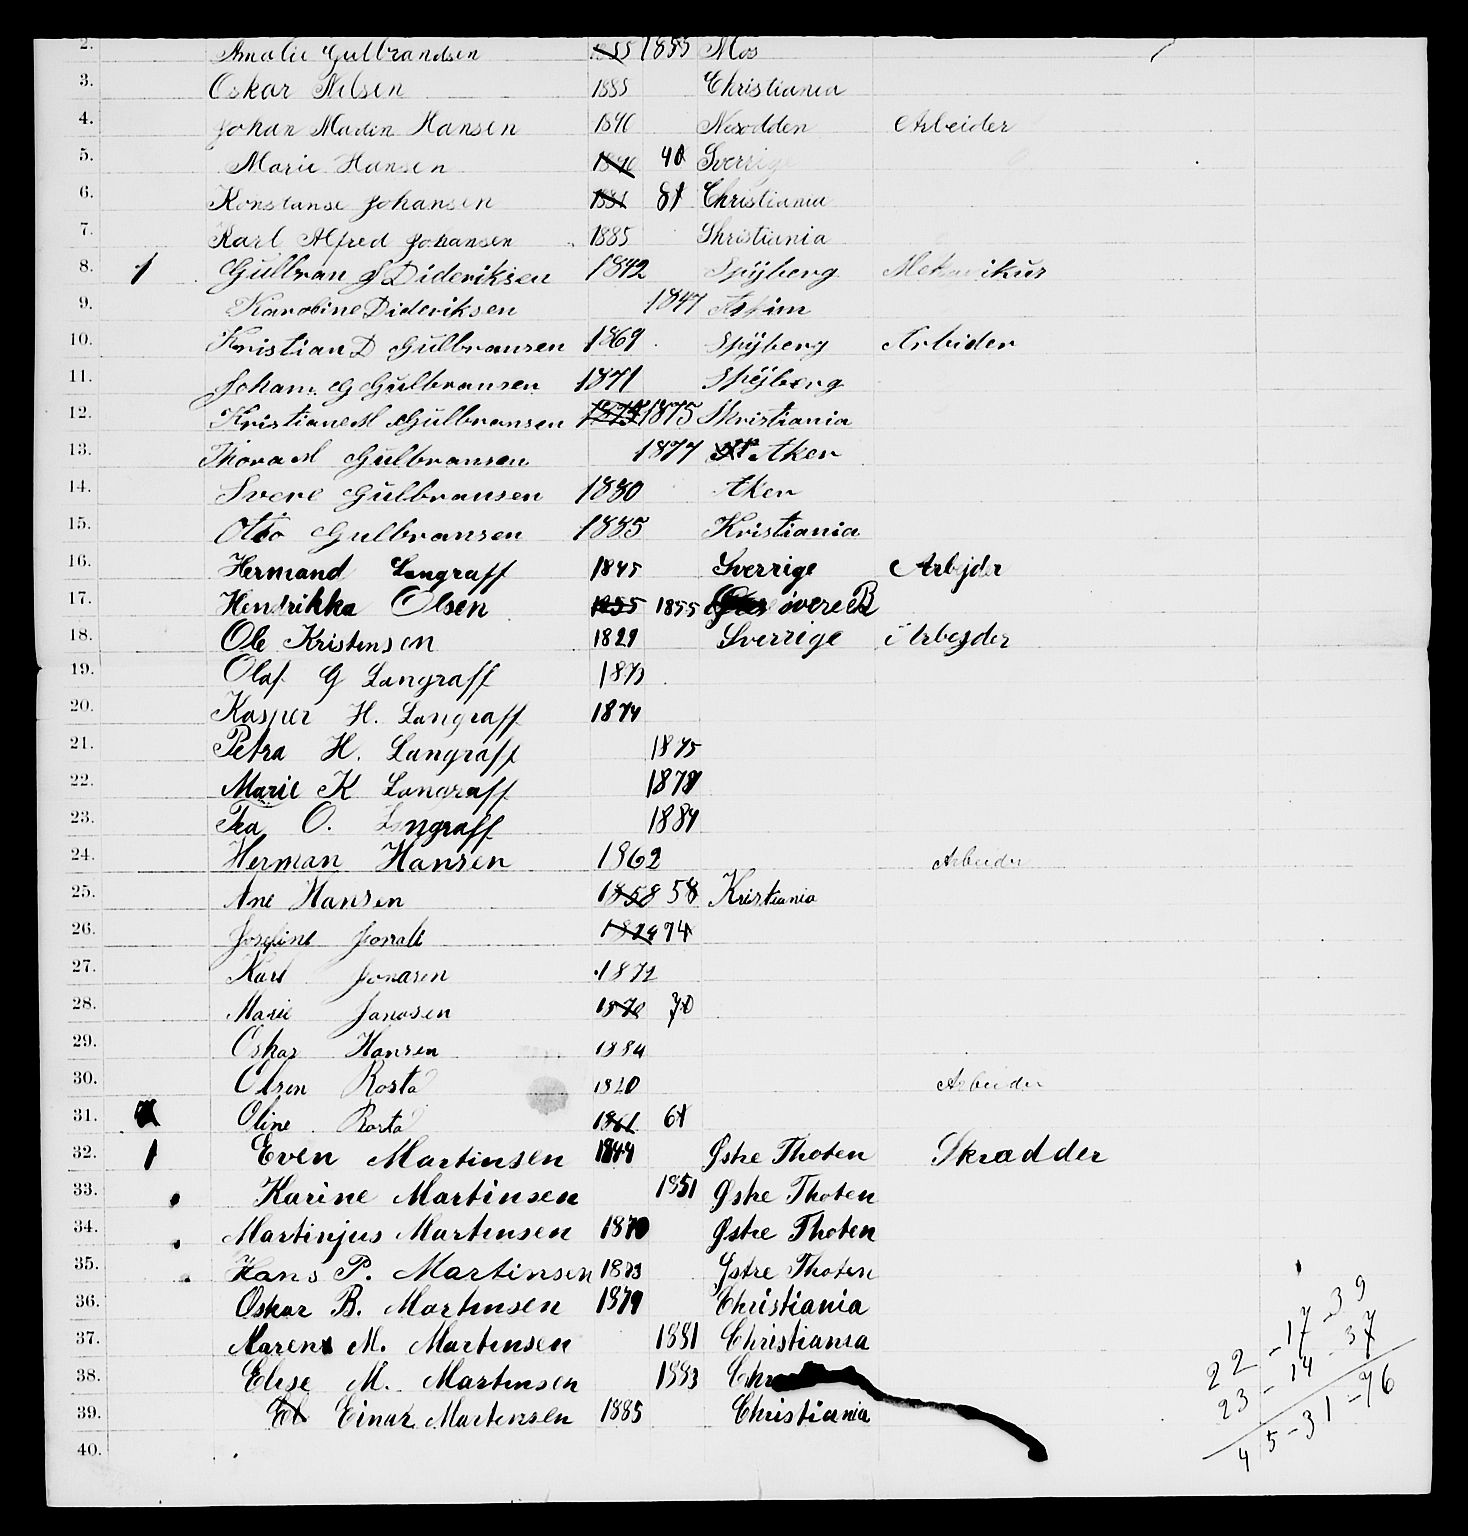 2. Amalie Gulbrandsen 1855 1855 Mos
3. Oskar Nilsen 1885 Christiania
4. Johan Martin Hansen 1846 Nesodden Arbeider
5. Marie Hansen 1840 40 Sverrige
6. Konstanse Johansen 1881 81 Christiania
7. Karl Alfred Johansen 1885 Christiania
8. 1 Gulbran Dideriksen 1842 Spyberg Mekanikus
9. Karoline Dideriksen 1847 Askim
10. Kristian D Gulbransen 1869 Spyberg Arbider
11. Johan G Gulbransen 1871 Spyberg
12. Kristiane M Gulbransen 1875 1875 Kristiania
13. Thora M Gulbransen 1877 Aker
14. Svere Gulbransen 1880 Aker
15. Otto Gulbransen 1885 Kristiania
16. Hermand Langraff 1845 Sverrige Arbejder
17. Hendrikka Olsen 1855 1855 övere B
18. Ole Kristensen 1829 Sverrige Arbejder
19. Olaf G Langraff 1873
20. Kasper H. Langraff 1874
21. Petra H. Langraff 1875
22. Marie K Langraff 1878
23. Tea O. Langraff 1884
24. Herman Hansen 1862 Arbeider
25. Ane Hansen 1858 58 Kristiania
26. Josefine 1874 74
27. Karl Jonasen 1872
28. Marie Janasen 1870 70
29. Oskar Hansen 1884
30. Olsen Rosta 1820 Arbeider
31. Oline Rosta 1861 61
32. 1 Even Martinsen 1844 Østre Thoten Skrædder
33. Karine Martinsen 1851 Østre Thoten
34. Martinjus Martinsen 1870 Østre Thoten
35. Hans P. Martinsen 1873 Østre Thoten
36. Oskar B. Martinsen 1879 Christiania
37. Maren M. Martinsen 1881 Christiania
38. Elise M. Martinsen 1883 Chr
39. El Einar Martinsen 1885 Christiania
40.
22 - 17 - 39
23 - 14 - 37
45 - 31 - 76